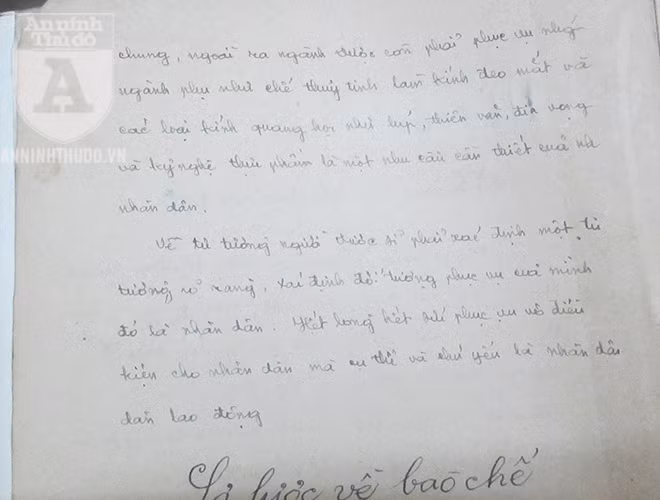 An ninh
Thủ đô
A
ANNINHTHUDO.VN
chung, ngoài ra ngành dược còn phải phục vụ những
ngành phụ như chế thuỷ tinh làm kính đeo mắt và
các loại kính quang học như lúp, thiên văn, địa vọng
và kỹ nghệ thực phẩm là một nhu cầu cần thiết của nh
nhân dân.
Về tư tưởng người dược sĩ phải xác định một tư
tưởng rõ ràng, xác định đối tượng phục vụ của mình
đó là nhân dân. Hết lòng hết sức phục vụ vô điều
kiện cho nhân dân mà cụ thể và chủ yếu là nhân dân
dân lao động
Sơ lược về bào chế